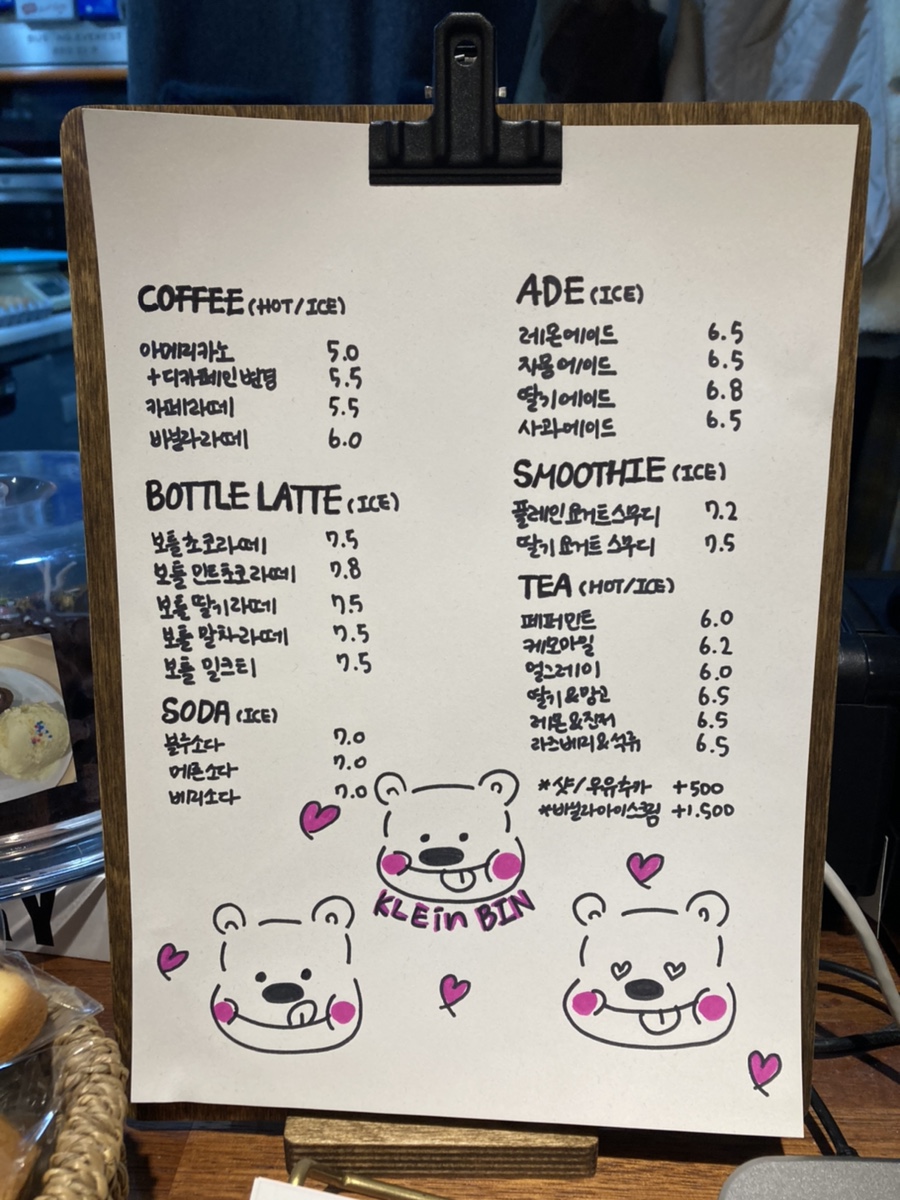 COFFEE (HOT/ICE)
아메리카노 5.0
+디카페인변경 5.5
카페라떼 5.5
바닐라라떼 6.0
BOTTLE LATTE (ICE)
보틀초코라떼 7.5
보틀 민트초코라떼 7.8
보틀 딸기라떼 7.5
보틀 말차라떼 7.5
보틀 밀크티 7.5
SODA (ICE)
블루소다 7.0
메론소다 7.0
베리소다 7.0
ADE (ICE)
레몬에이드 6.5
자몽에이드 6.5
딸기에이드 6.8
사과에이드 6.5
SMOOTHIE (ICE)
플레인요거트스무디 7.2
딸기요거트 스무디 7.5
TEA (HOT/ICE)
페퍼민트 6.0
케모마일 6.2
얼그레이 6.0
딸기&망고 6.5
레몬&진저 6.5
라즈베리&석류 6.5
*샷/우유추가 +500
*바닐라아이스크림 +1.500
KLEin BIN
Y